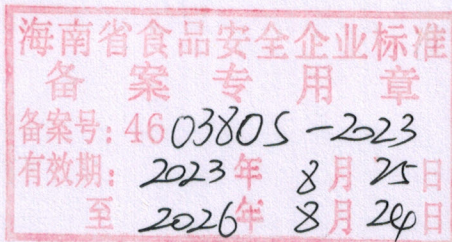 海南省食品安全企业标准
备案专用章
备案号：460380S-2023
有效期：2023年8月25日
至2026年8月24日